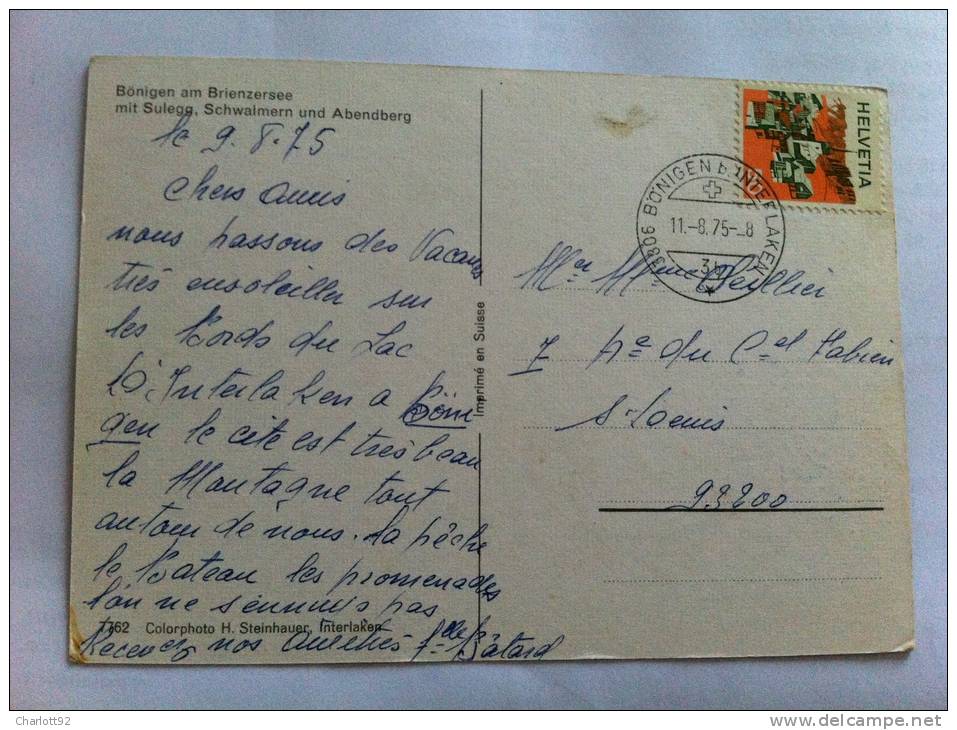 Bönigen am Brienzersee
mit Sulegg, Schwalmern und Abendberg
le 9.8.75
Chers Amis
nous passons des Vacances
très ensoleiller sur
les Bords du Lac
D'Interlaken a Böni
gen le cite est très beau
la Montagne tout
autour de nous. La pêche
le Bateau les promenades
l'on ne s'ennuis pas
7762 Colorphoto H. Steinhauer, Interlaken
Recevez nos amitiés Bâtard
Imprimé en Suisse
HELVETIA
3806 BÖNIGEN b. INTERLAKEN
11.-8.75-_8
Mer Mme
7 du Cel Fabien
St-Louis
93200
Charlott92
www.delcampe.net